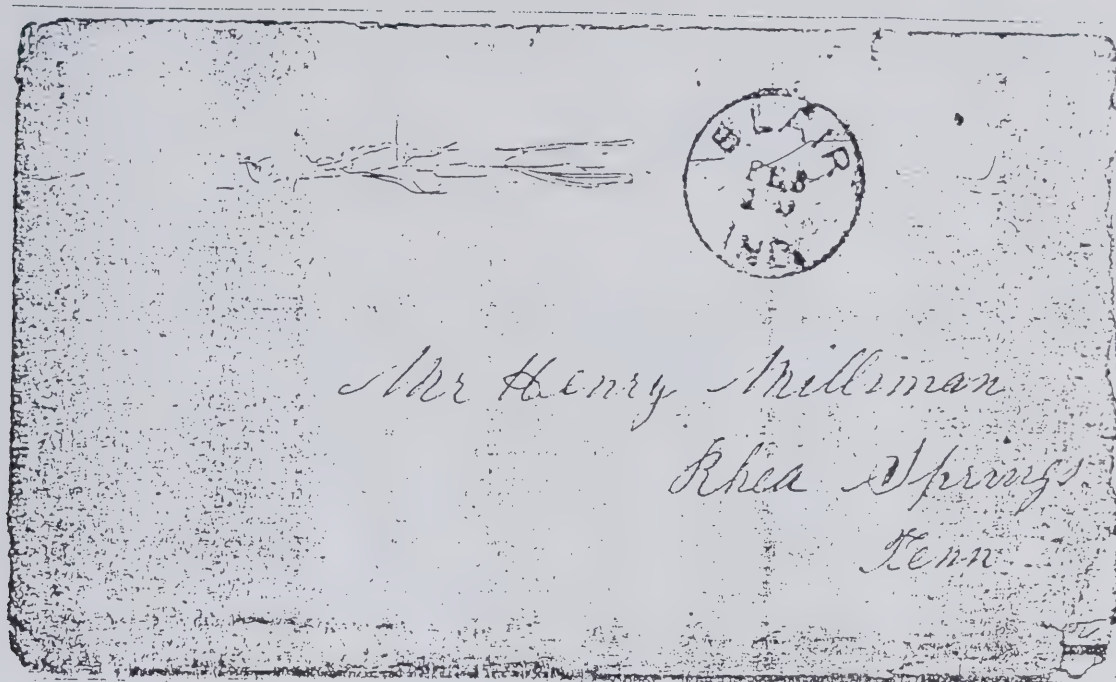 BLAIR
FEB
IND.
Mr Henry Milliman
Rhea Springs
Tenn